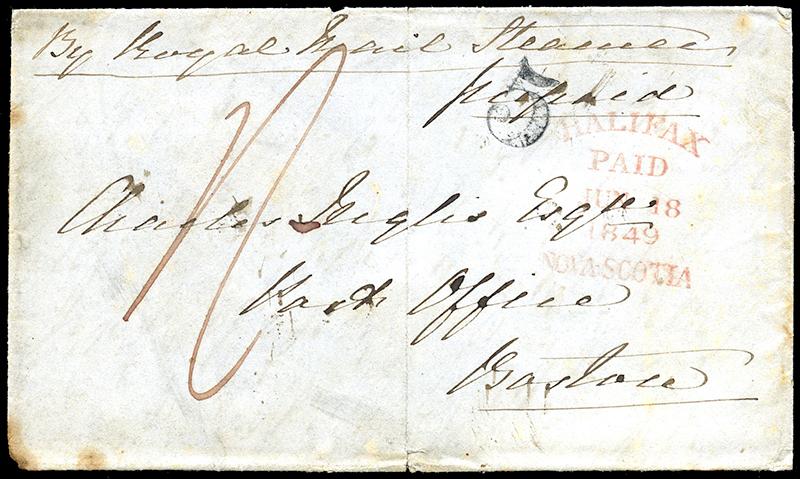 By Royal Mail Steamer
prepaid
5
HALIFAX
PAID
JUN 18
1849
NOVA-SCOTIA
Charles Inglis Esqre
Post Office
Boston